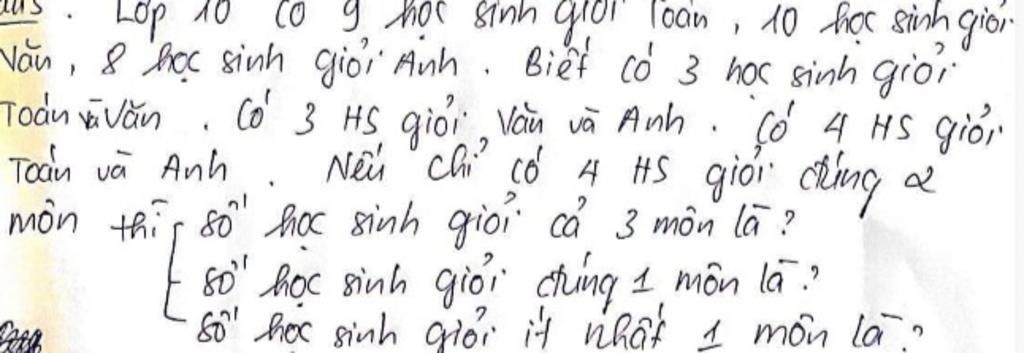 . Lớp 10 có 9 học sinh giỏi Toán, 10 học sinh giỏi
Văn, 8 học sinh giỏi Anh. Biết có 3 học sinh giỏi
Toán và Văn. Có 3 HS giỏi Văn và Anh. Có 4 HS giỏi
Toán và Anh. Nếu chỉ có 4 HS giỏi đúng 2
môn thì số học sinh giỏi cả 3 môn là?
số học sinh giỏi đúng 1 môn là?
số học sinh giỏi ít nhất 1 môn là?